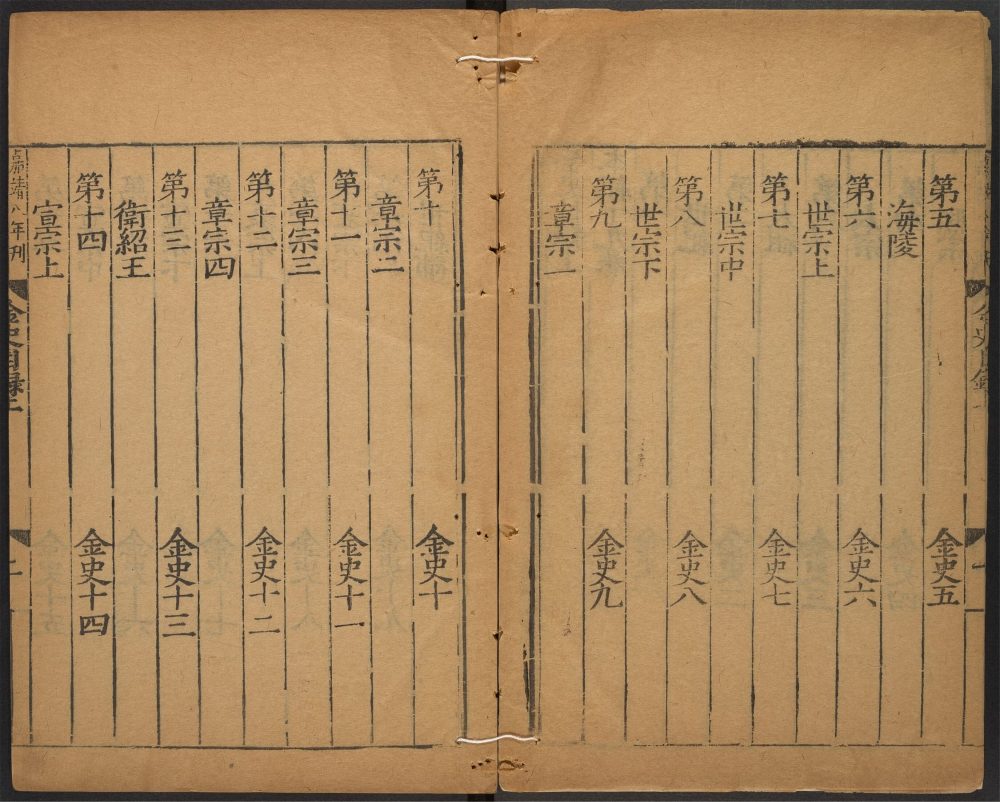 第五 金史五
海陵
第六 金史六
世宗上
第七 金史七
世宗中
第八 金史八
世宗下
第九 金史九
章宗一
第十 金史十
章宗二
第十一 金史十一
章宗三
第十二 金史十二
章宗四
第十三 金史十三
衛紹王
第十四 金史十四
宣宗上
嘉靖八年刊
金史目録二
二